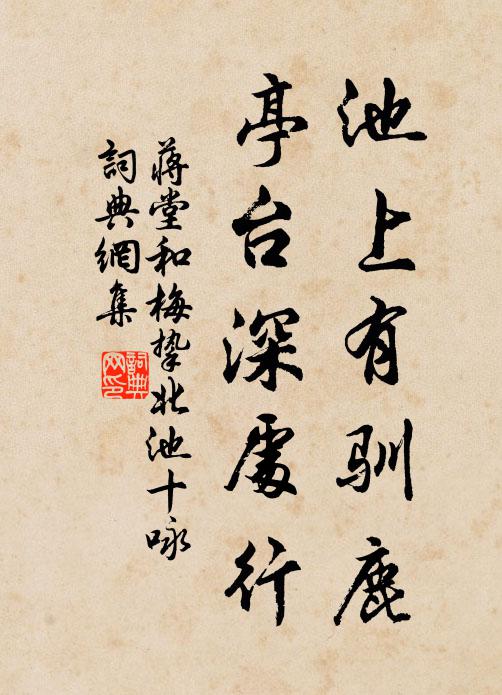 池上有驯鹿
亭台深處行
蒋堂和梅挚北池十咏
詞典網集
詞典
网印